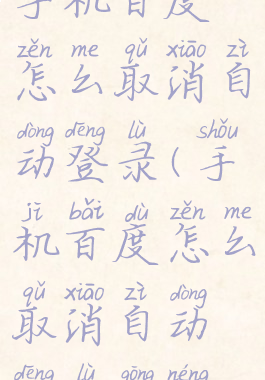 手机百度
zěn me qǔ xiāo zì
怎么取消自
dòng dēng lù shǒu
动登录(手
jī bǎi dù zěn me
机百度怎么
qǔ xiāo zì dòng
取消自动
dēng lù gōng néng